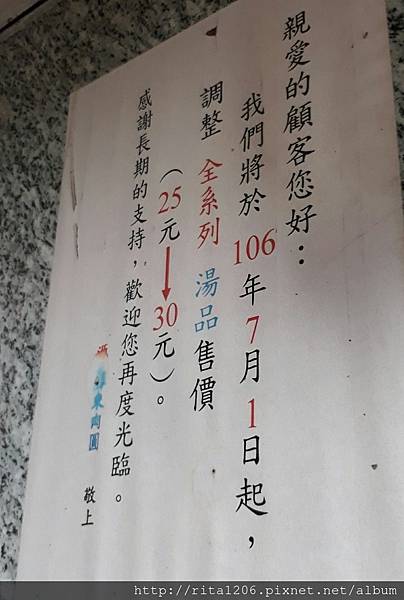 親愛的顧客您好：
我們將於106年7月1日起，
調整 全系列 湯品售價
（25元→30元）。
感謝長期的支持，歡迎您再度光臨。
東肉圓 敬上
http://rita1206.pixnet.net/album